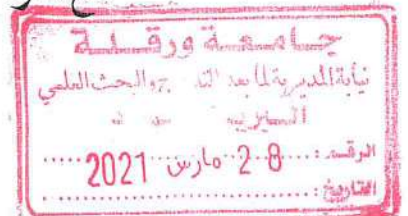 جامعة ورقلة
نيابة المديرية لما بعد التدرج والبحث العلمي
الرقم: ....................
التاريخ: 28 مارس 2021